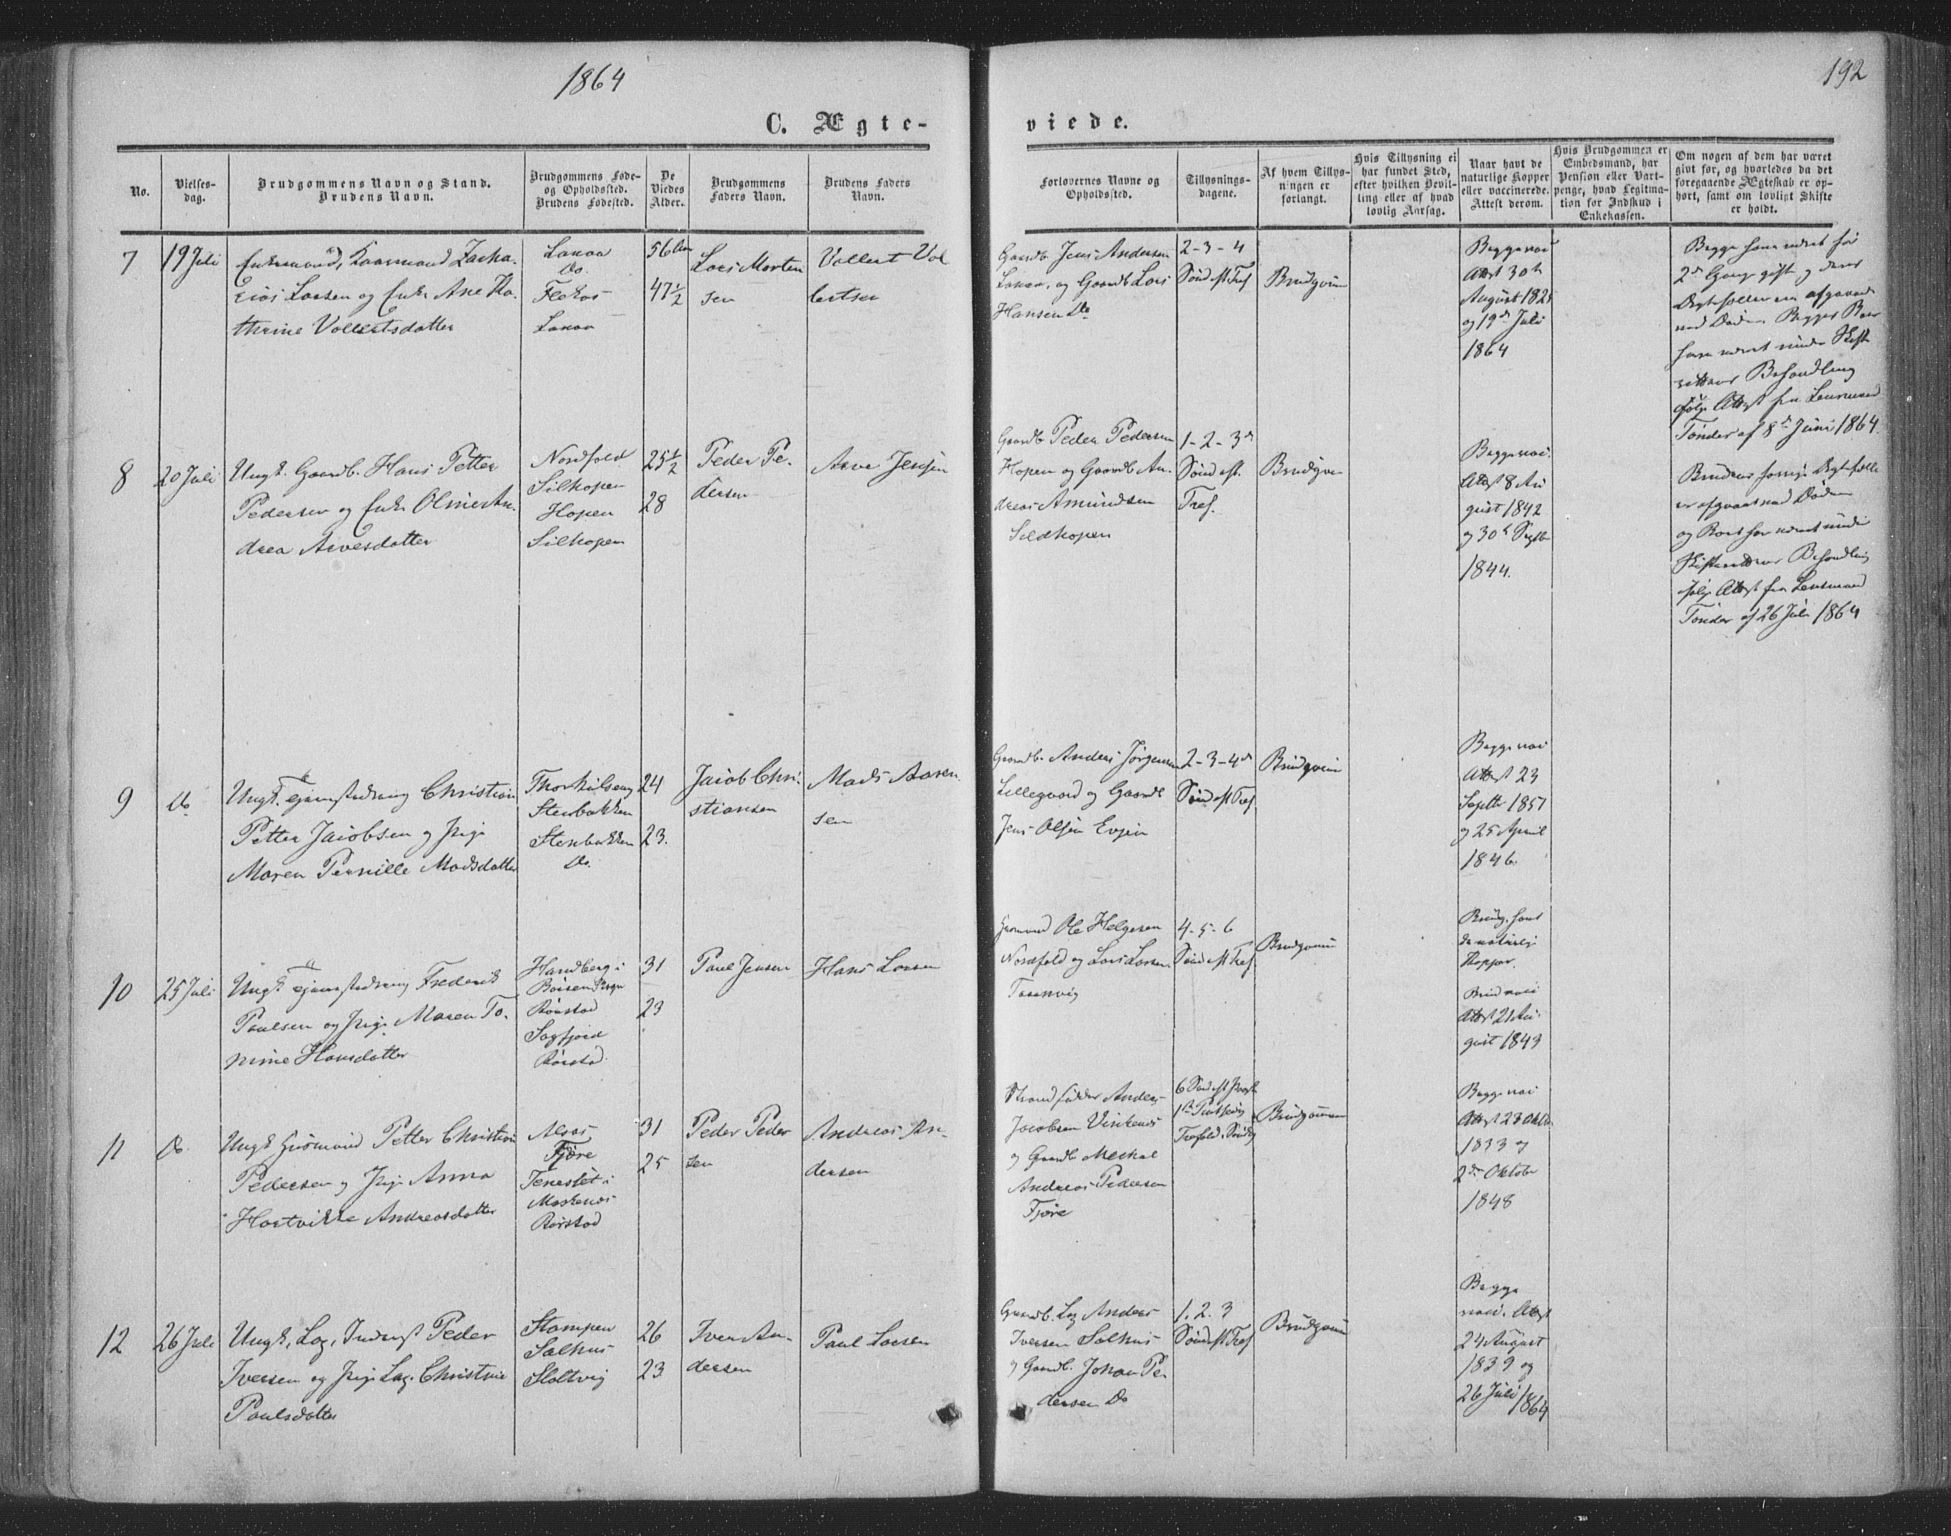 1864
192
C. Ægte-
viede.
No.
Vielses-
dag.
Brudgommens Navn og Stand.
Brudens Navn.
Brudgommens Føde-
og Opholdssted.
Brudens Fødested.
De
Viedes
Alder.
Brudgommens
Faders Navn.
Brudens Faders
Navn.
Forlovernes Navne og
Opholdssted.
Tillysnings-
dagene.
Af hvem Tillys-
ningen er
forlangt.
Hvis Tillysning ei
har fundet Sted,
efter hvilken Bevil-
ling eller af hvad
lovlig Aarsag.
Naar havt de
naturlige Kopper
eller vaccinerede.
Attest derom.
Hvis Brudgommen er
Embedsmand, har
Pension eller Vart-
penge, hvad Legitima-
tion for Indskud i
Enkekassen.
Om nogen af dem har været
givt før, og hvorledes da det
foregaaende Ægteskab er op-
hørt, samt om lovligt Skifte
er holdt.
7
19 Juli
Enkemand, Zacha-
rias Larsen og Enke Ane Ka-
thrine Vollertsdatter
Do.
56
47½
Lars Morten
sen
Vollert Vol
lertsen
Gaardb Jens Andersen
og Gaardb Lars
Hansen Do
2-3-4
Sønd eft Tref
Brudgom
Begge vac
Attest 30te
August 182
og 19de Juli
1864
Begge have været før
2den Gang gift og deres
Ægtefæller er afgaaet
ved Døden. Begges Boer
have været under Skifte
rettens Behandling
ifølge Attest fra Lensmand
Tønder af 8de Juni 1864.
8
20 Juli
Ungk. Gaardb. Hans Petter
Pedersen og Enke An-
drea Arvesdatter
Nordfold
Silhopen
Hopen
Silhopen
25½
28
Peder Pe-
dersen
Arve Jensen
Gaardb Peder Pedersen
Hopen og Gaardb An-
dreas Amundsen
Sildhopen
1-2-3de
Sønd eft.
Tref.
Brudgom
Begge vac.
Attest 8 Au
gust 1842
og 30te Septbr
1844.
Brudens forrige Ægtefælle
er afgaaet ved Døden
og Boet har været under
Skifterettens Behandling
ifølge Attest fra Lensmand
Tønder af 26 Juli 1864
9
Do
Ungk. Christian
Petter Jacobsen og Pige
Maren Pernille Madsdatter
Stenbakken
Stenbakken
Do.
24
23.
Jacob Chri-
stiansen
Mads Aaren
sen
Gaardb. Anders Jørgensen
Lillegaard og Gaardb
Jens Olsen Evjen
2-3-4de
Sønd eft Tref
Brudgom
Begge vac
Attest 23
Septbr 1851
og 25 April
1846.
10
25 Juli
Ungk. Frederik
Paulsen og Pige Maren To-
nine Hansdatter
Handberg i
Rørstad
Sagfjord
Rørstad.
31
23
Paul Jensen
Hans Larsen
Ole Helgesen
Nordfold og Lars Larsen
Tørrvig
4-5-6
Sønd eft Tref.
Brudgom
Brudg. havt
de naturlige
Kopper.
Brud vac
Attest 21 Au-
gust 1843
11
Do.
Ungk Huusmand Petter Christian
Pedersen og Pige Anna
Hartvikke Andreasdatter
Fjøre
Tenesset i
Moskenes
Rørstad
31
25
Peder Peder
sen
Andreas An-
dersen
Anders
Jacobsen
og Gaardb Mechal
Andreas Pedersen
Fjøre
6 Sønd eft
Brudgommen
Begge vac
Attest 23 Oktbr
1833 og
2den Oktobr
1848
12
26 Juli
Ungk, Lap, Inderst Peder
Iversen og Pige Lap. Christine
Paulsdatter
Stampen
Salhus
Skoltvig
26
23
Iver An-
dersen
Paul Larsen
Gaardb. Lap Anders
Iversen Salhus
og Gaardb. Johan Pe
dersen Do
1. 2. 3
Sønd eft Tref
Brudgom
Begge
vac. Attest
24 August
1839 og
26 Juli 1864